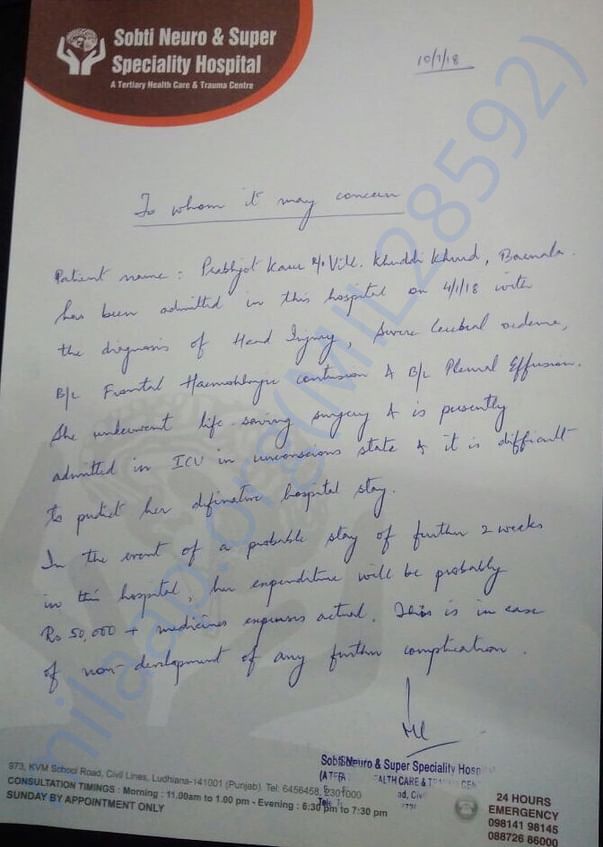 Sobti Neuro & Super
Speciality Hospital
A Tertiary Health Care & Trauma Centre
10/1/18
To whom it may concern
Patient name : Prabhjot Kaur R/o Vill. Khuddi Khurd, Barnala.
has been admitted in this hospital on 4/1/18 with
the diagnosis of Head Injury, Severe Cerebral oedema,
B/L Frontal Haemohhagic contusion & B/L Pleural Effusion.
She underwent life-saving surgery & is presently
admitted in ICU in unconscious state & it is difficult
to predict her definative hospital stay.
In the event of a probable stay of further 2 weeks
in this hospital, her expenditure will be probably
Rs 50,000 + medicines expenses actual. This is in case
of non-development of any further complication.
milaap.org(MIL28592)
Sobti Neuro & Super Speciality Hosp
HEALTH CARE &
973, KVM School Road, Civil Lines, Ludhiana-141001 (Punjab). Tel: 6456458, 2301000
CONSULTATION TIMINGS : Morning : 11.00am to 1.00 pm - Evening : 6:30 pm to 7:30 pm
SUNDAY BY APPOINTMENT ONLY
24 HOURS
EMERGENCY
098141 98145
088726 86000